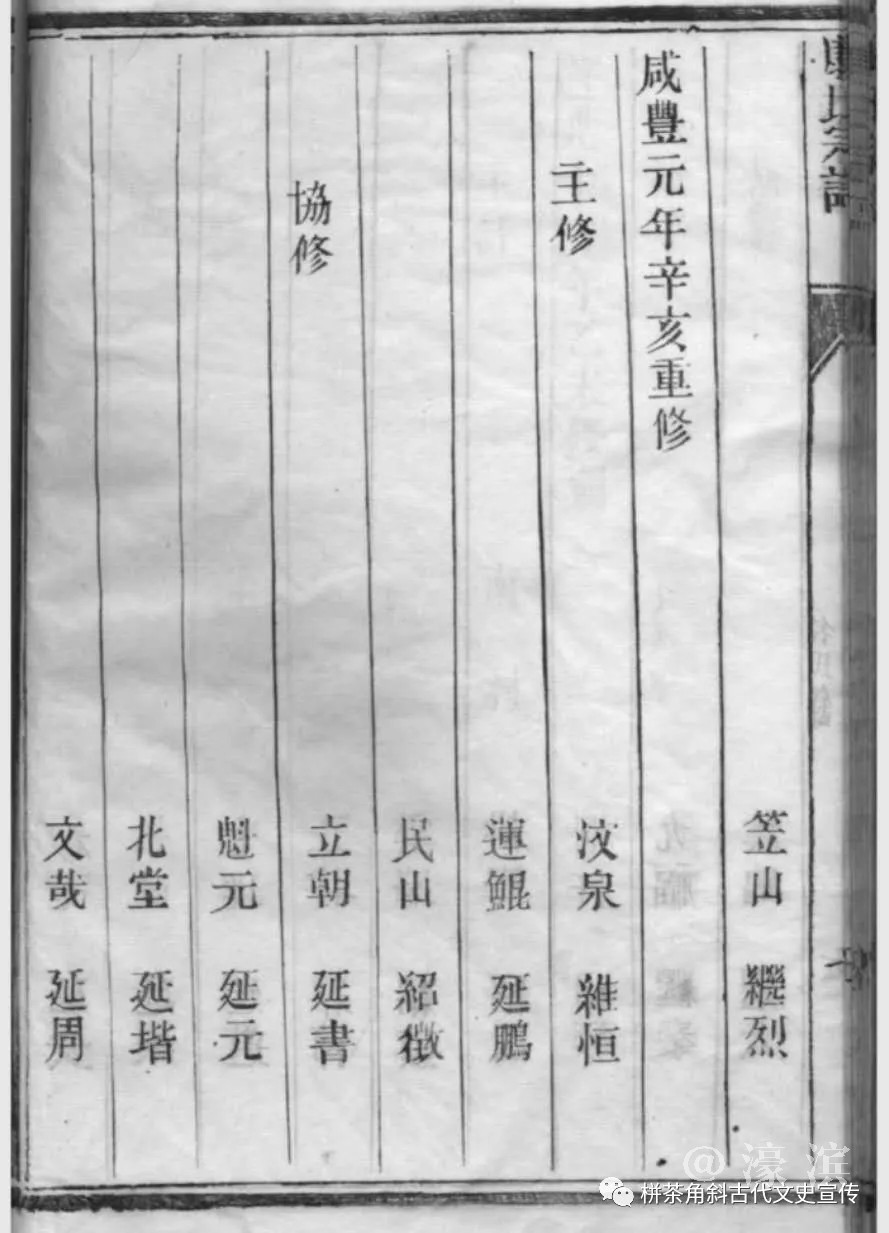 氏宗譜
笠山　繼烈
咸豐元年辛亥重修
主修　汶泉　維恒
蓮鯤　延鵬
民山　紹徵
協修　立朝　延書
魁元　延元
北堂　延堦
文哉　延周
@濠滨
栟茶角斜古代文史宣传